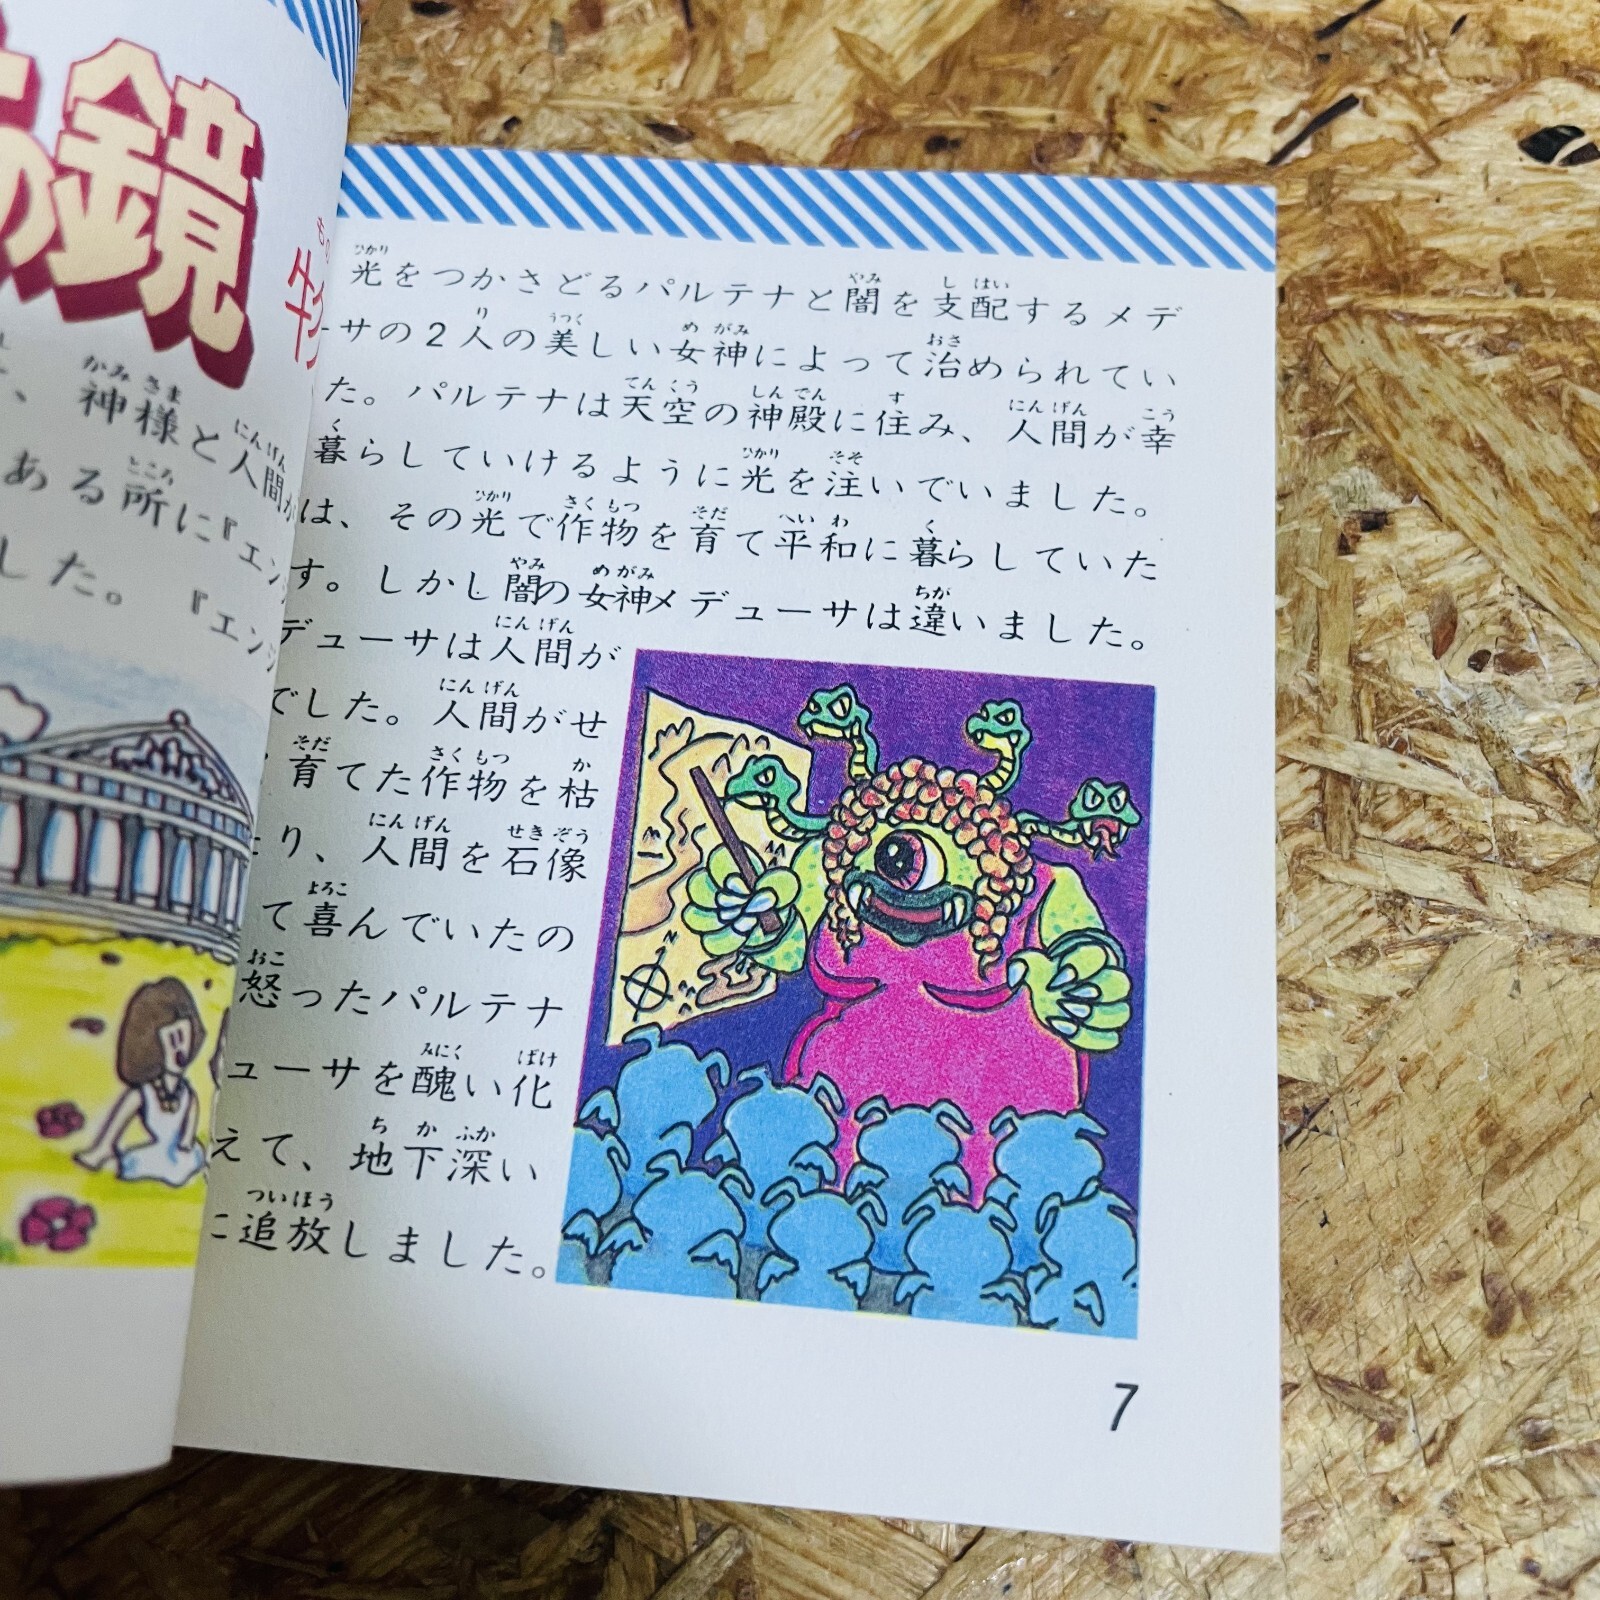 の鏡
、神様と人間が
ある所に『エンジ
した。『エンジ
光をつかさどるパルテナと闇を支配するメデ
ーサの2人の美しい女神によって治められてい
た。パルテナは天空の神殿に住み、人間が幸
暮らしていけるように光を注いでいました。
は、その光で作物を育て平和に暮らしていた
す。しかし闇の女神メデューサは違いました。
デューサは人間が
でした。人間がせ
育てた作物を枯
たり、人間を石像
て喜んでいたの
怒ったパルテナ
ューサを醜い化
えて、地下深い
に追放しました。
7